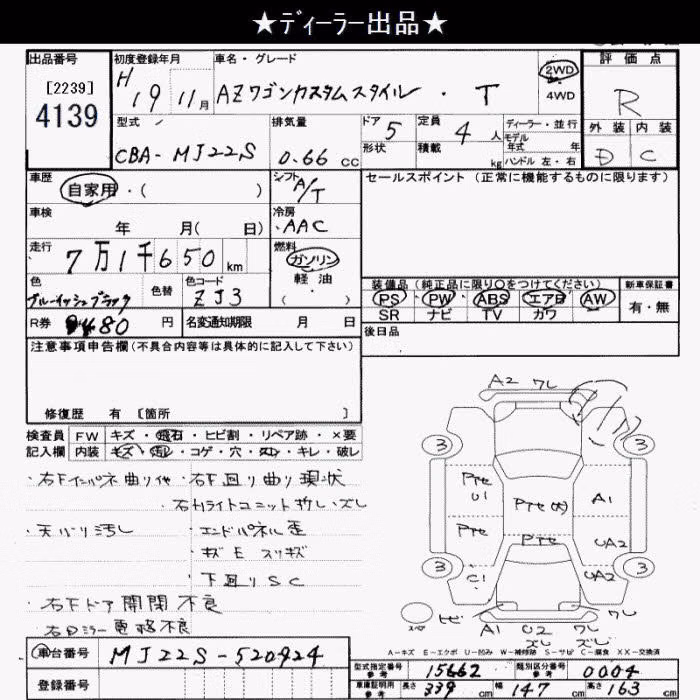 ★ディーラー出品★
出品番号
[2239]
4139
初度登録年月
H19 11月
車名・グレード
AZワゴンカスタムスタイル・T
2WD
4WD
評価点
R
外装 内装
D C
型式
CBA-MJ22S
排気量
0.66 CC
ドア 5
形状
定員 4 人
積載 kg
ディーラー・並行
モデル年式 年
ハンドル 左・右
車歴
自家用・( )
シフト A/T
車検 年 月( 日)
冷房 AAC
走行
7万1千650 km
燃料
ガソリン
軽油
( )
色
ブルーイッシュブラック
色替
色コード
ZJ3
R券 9480 円
名変通知期限 月 日
セールスポイント (正常に機能するものに限ります)
装備品 (純正品に限り○をつけてください)
PS PW ABS エアB AW
SR ナビ TV カワ
新車保証書
有・無
後日品
注意事項申告欄(不具合内容等は具体的に記入して下さい)
修復歴 有 [箇所 ]
検査員記入欄
FW キズ・飛石・ヒビ割・リペア跡・×要
内装 キズ・汚レ・コゲ・穴・スレ・キレ・破レ
・右Fインパネ曲り他・右F廻り曲り現状
右Hライトユニット折レズレ
・天バリ汚レ
・エンドパネル歪
・キズEスリキズ
・下廻りSC
・右Fドア開閉不良
右Dミラー電格不良
A2 ワレ
3 3
Pte U1
Pte(大)
A1
Pte
Pte
UA2
C1
UA2
3 3
スペア
ヒビ
A1 U2 ワレ ワレ
ズレ ズレ
A-キズ E-エクボ U-凹み W-補修跡 S-サビ C-腐食 XX-交換済
車台番号 MJ22S-520924
登録番号
型式指定番号 参考 15662
類別区分番号 参考 0004
車庫証明用 参考 長さ 339 cm 幅 147 cm 高さ 163 cm